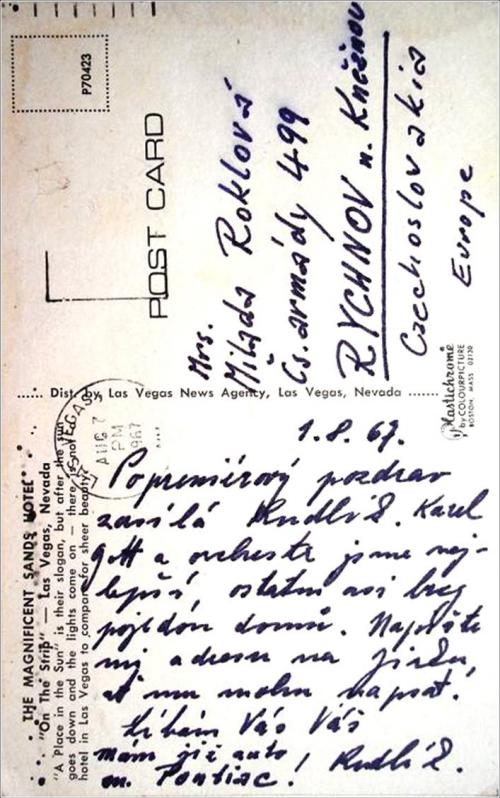 THE MAGNIFICENT SANDS HOTEL
"On The Strip" — Las Vegas, Nevada
"A Place in the Sun" is their slogan, but after the sun
goes down and the lights come on — there is not a
hotel in Las Vegas to compare for sheer beauty.
P70423
POST CARD
...... Dist. by Las Vegas News Agency, Las Vegas, Nevada ......
Plastichrome
by COLOURPICTURE
BOSTON, MASS 02130
VEGAS
AUG 7
PM
1967
Mrs.
Milada Roklová
Čs. armády 499
RYCHNOV n. Kněžnou
Czechoslovakia
Europe
1.8.67.
Popremiérový pozdrav
zasílá Rudli Š. Karel
Gott a orchestr jsme nej-
lepší ostatní asi brzy
pojedou domů. Napište
mi adresu na Jirku,
ať mu mohu napsat!
Líbám Vás Váš
mám již auto
zn. Pontiac! Rudli Š.